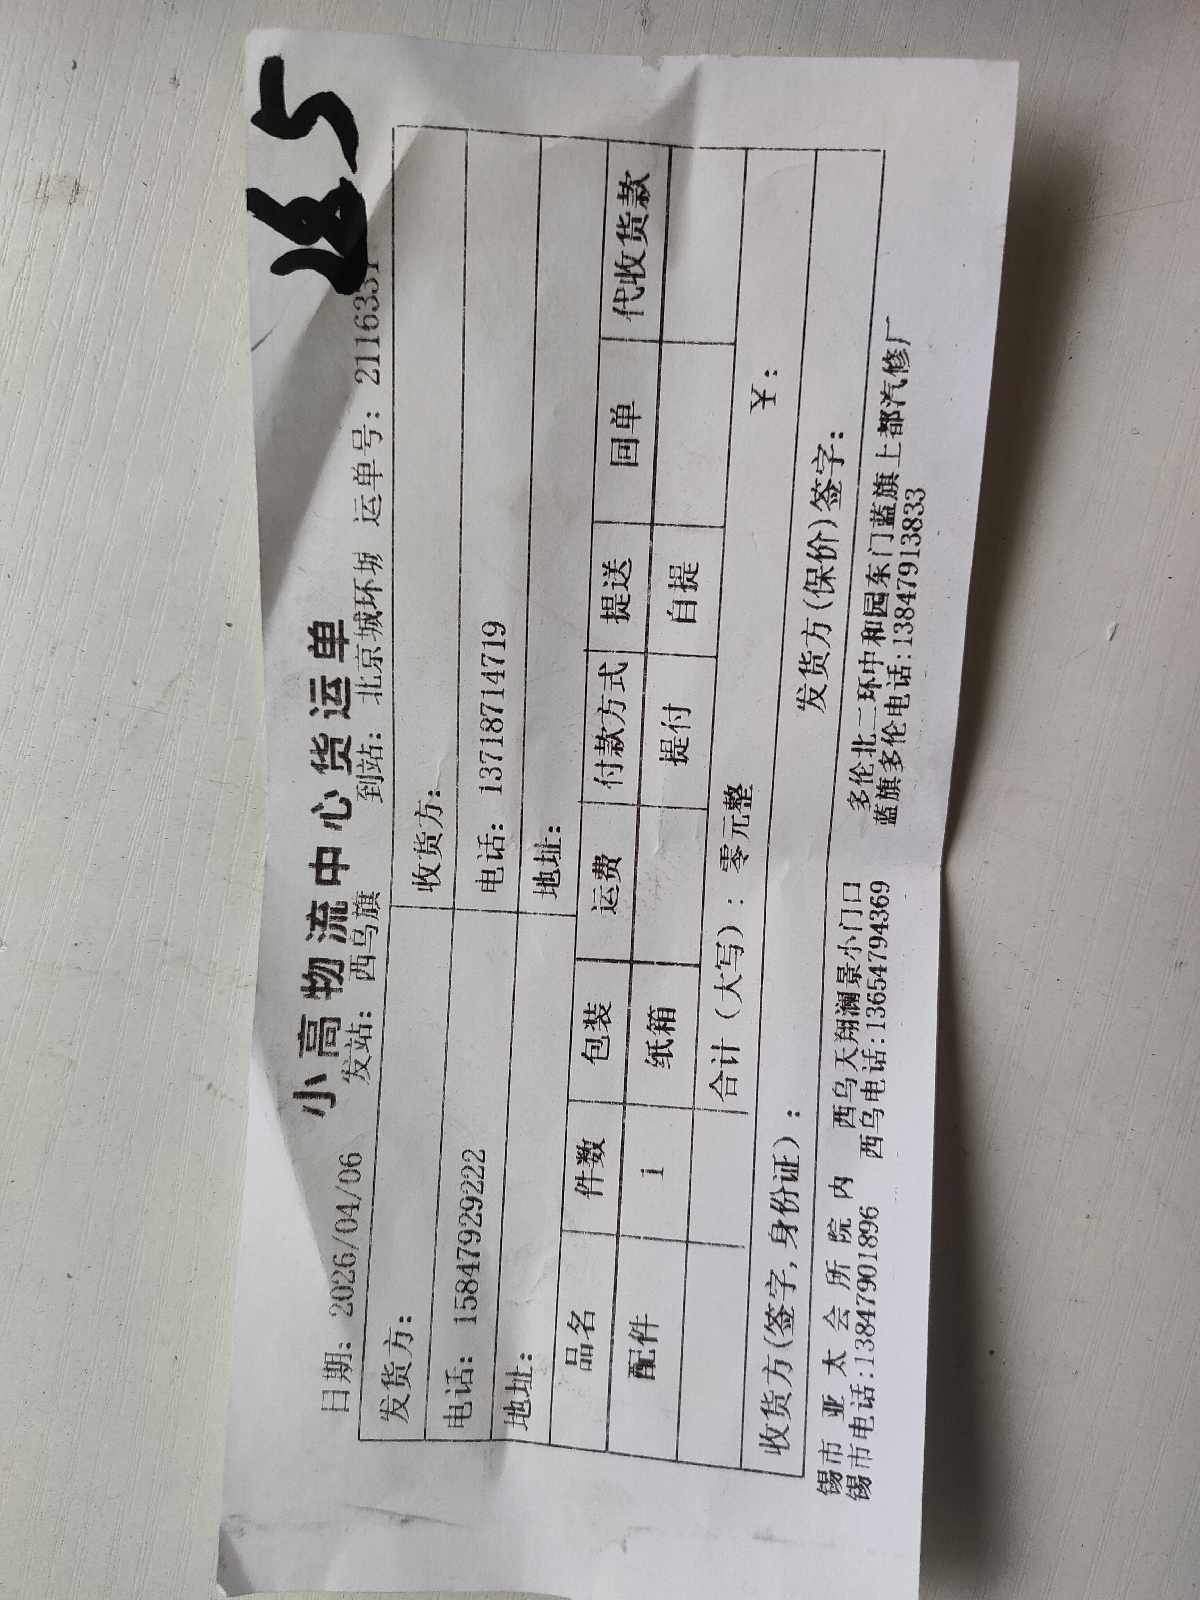 小高物流中心货运单
日期：2026/04/06 发站：西乌旗 到站：北京城环城 运单号：2116331
发货方： 收货方：
电话：15847929222 电话：13718714719
地址： 地址：
品名 件数 包装 运费 付款方式 提送 回单 代收货款
配件 1 纸箱 提付 自提
合计（大写）：零元整 ￥：
收货方(签字,身份证)： 发货方(保价)签字：
锡市 亚 太 会 所 院 内 西乌天翔澜景小门口 多伦北二环中和园东门蓝旗上都汽修厂
锡市电话:13847901896 西乌电话:13654794369 蓝旗多伦电话:13847913833